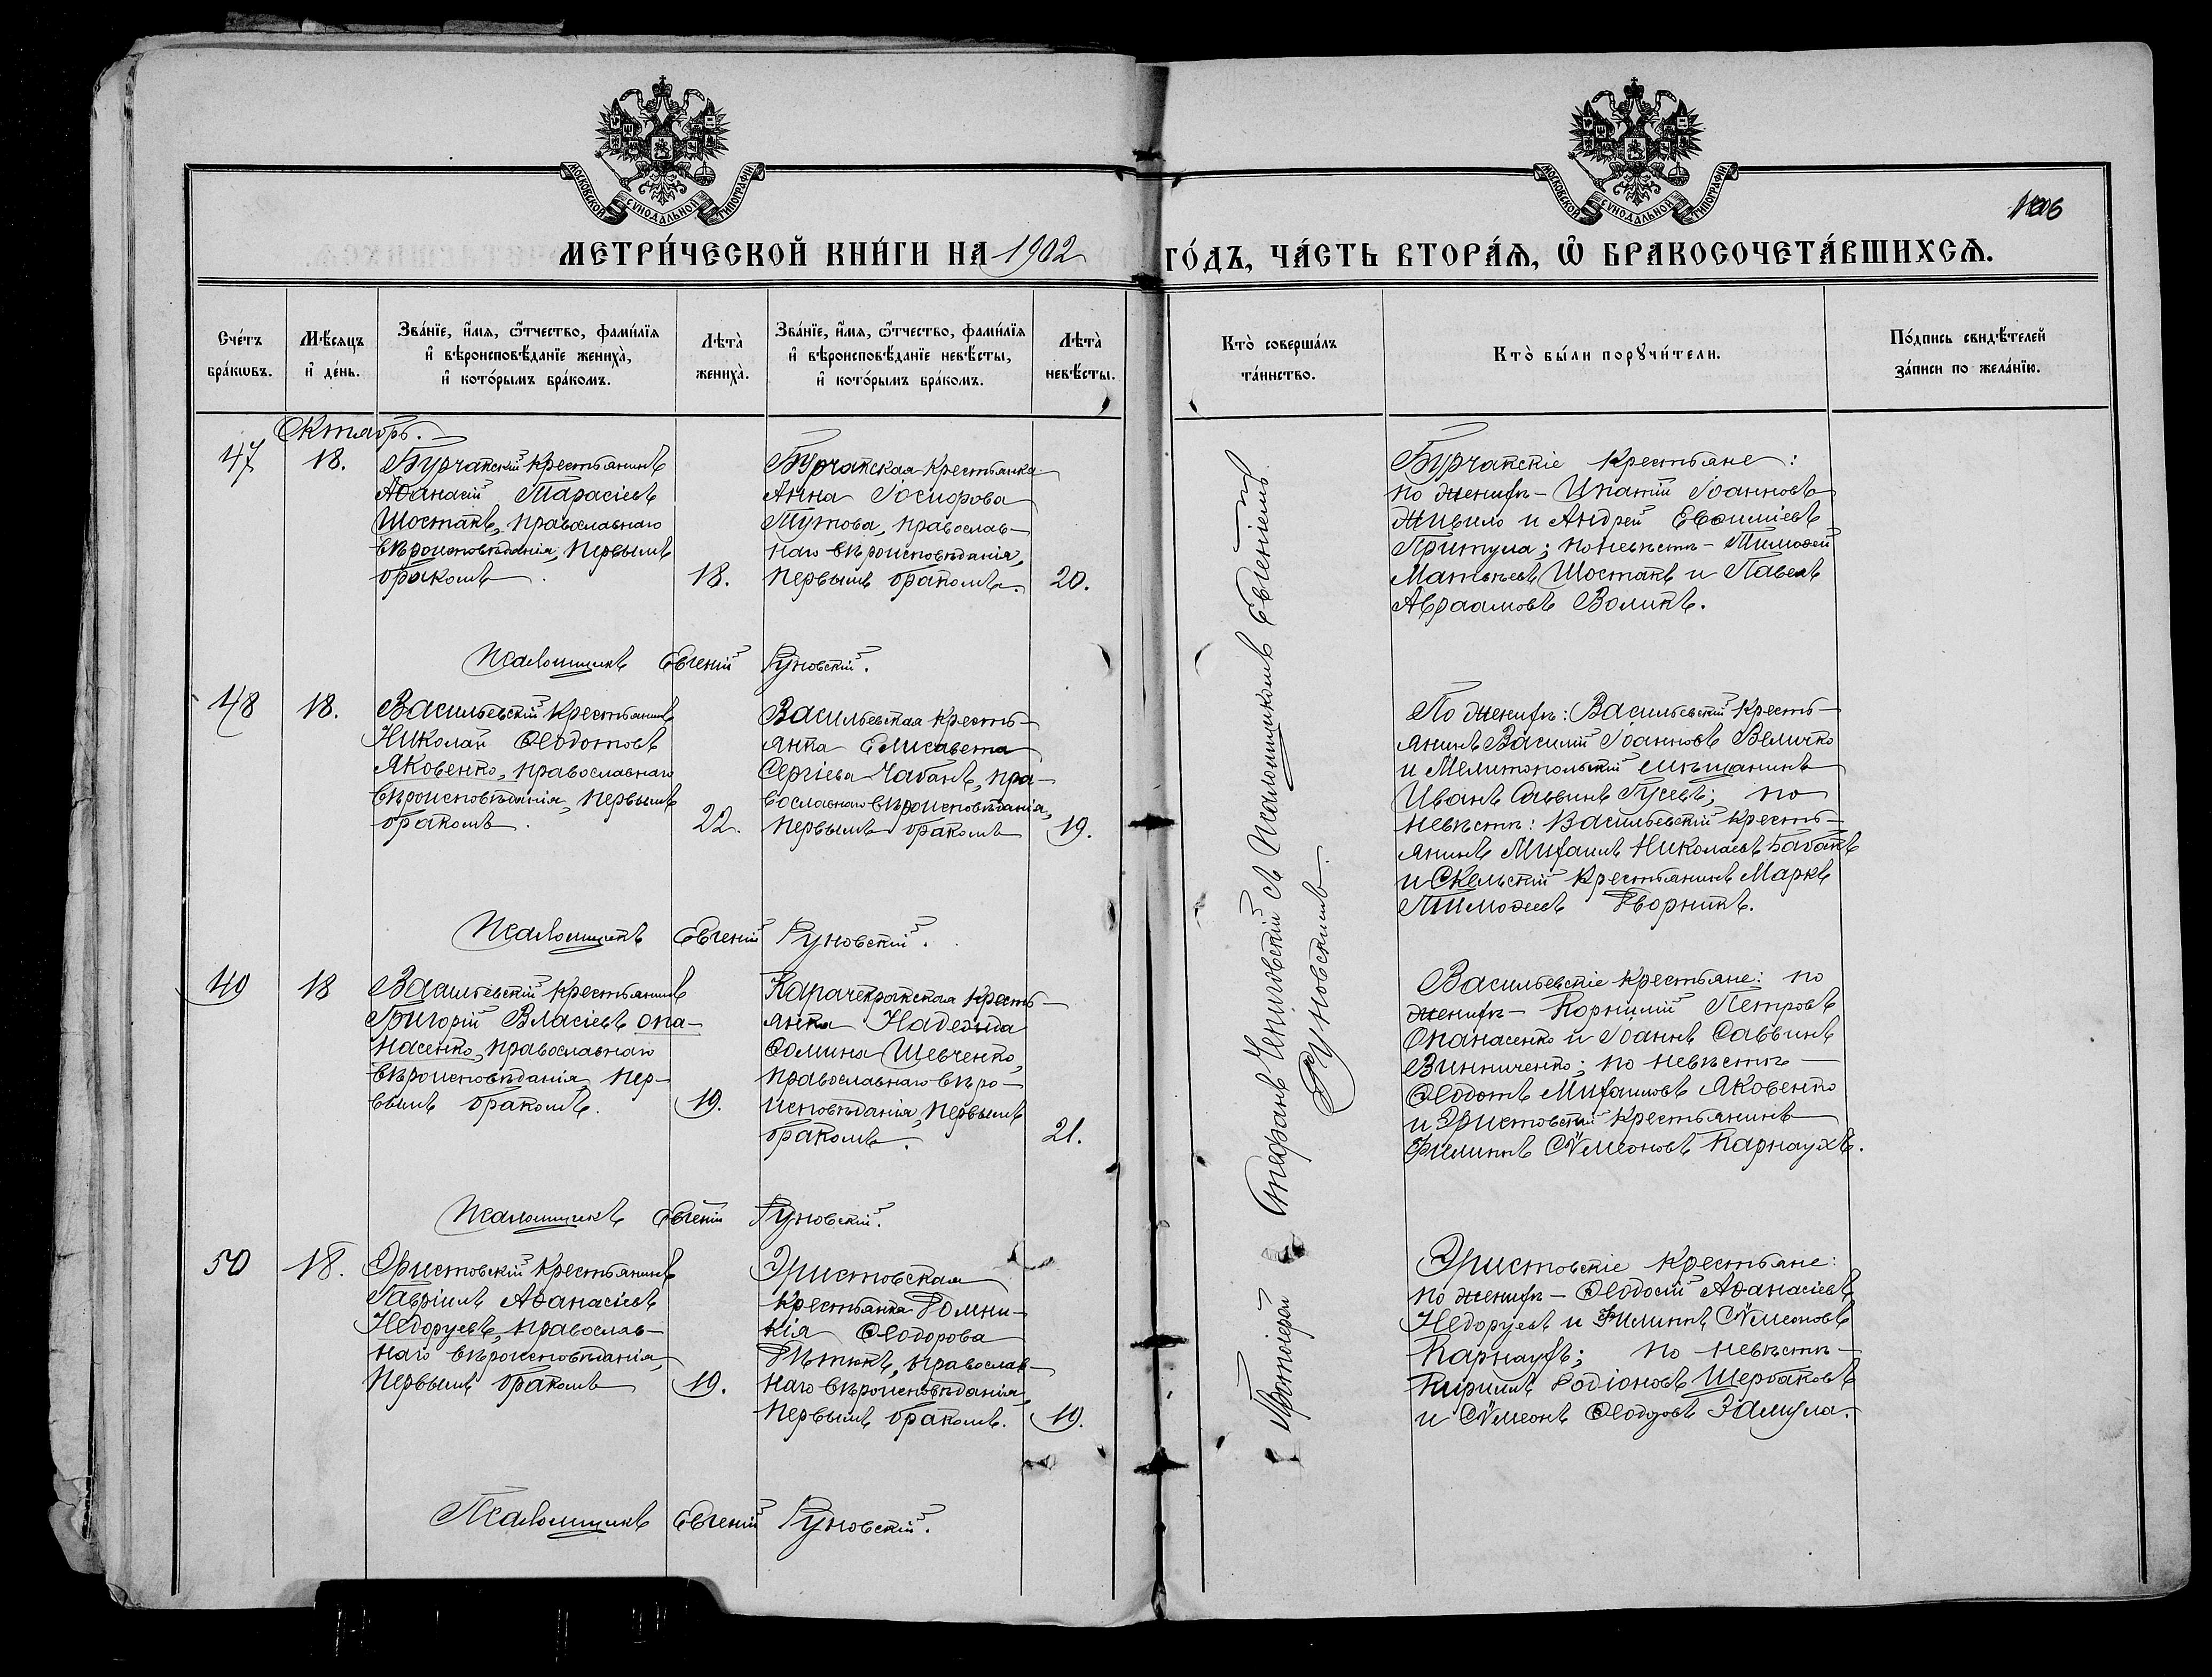 МОСКОВСКОЙ СУНОДАЛЬНОЙ ТИПОГРАФІИ
МОСКОВСКОЙ СУНОДАЛЬНОЙ ТИПОГРАФІИ
МЕТРИ́ЧЕСКОЙ КНИ́ГИ НА 1902 ГО́ДЪ, ЧА́СТЬ ВТОРА́Ѧ, Ѽ БРАКОСОЧЕТА́ВШИХСѦ.
Сче́тъ
бра́кѡвъ.
Мѣ́сяцъ
и҆ де́нь.
Зва́нїе, и҆́мя, ѻ҆́тчество, фами́лїя
и҆ вѣроисповѣ́данїе жениха̀,
и҆ кото́рымъ бра́комъ.
Лѣ́та̀
жениха̀.
Зва́нїе, и҆́мя, ѻ҆́тчество, фами́лїя
и҆ вѣроисповѣ́данїе невѣ́сты,
и҆ кото́рымъ бра́комъ.
Лѣ́та̀
невѣ́сты.
Кто̀ соверша́лъ
та́инство.
Кто̀ бы́ли порꙋчи́тели.
По́дпись свидѣ́телей
за́писи по жела́нїю.
Октябрь.
47
18.
Бурчатскій крестьянинъ
Аѳанасій Тарасіевъ
Шостакъ, православнаго
вѣроисповѣданія, первымъ
бракомъ.
18.
Бурчатская крестьянка
Анна Іосифова
Тутова, православ-
наго вѣроисповѣданія,
первымъ бракомъ.
20.
Бурчатскіе крестьяне:
по женихѣ - Ипатій Іоанновъ
Живило и Андрей Евѳиміевъ
Притула; по невѣстѣ - Тимоѳей
Матѳеевъ Шостакъ и Павелъ
Авраамовъ Воликъ.
Псаломщикъ Евгеній Руновскій.
48
18.
Васильевскій крестьянинъ
Николай Ѳеодотовъ
Яковенко, православнаго
вѣроисповѣданія, первымъ
бракомъ.
22.
Васильевская кресть-
янка Елисавета
Сергіева Чабанъ, пра-
вославнаго вѣроисповѣданія,
первымъ бракомъ
19.
По женихѣ: Васильевскій кресть-
янинъ Василій Іоанновъ Величко
и Мелитопольскій мѣщанинъ
Иванъ Саввинъ Гусевъ; по
невѣстѣ: Васильевскій кресть-
янинъ Михаилъ Николаевъ Бабакъ
и Скельскій крестьянинъ Маркъ
Тимоѳеевъ Дворникъ.
Псаломщикъ Евгеній Руновскій.
49
18
Васильевскій крестьянинъ
Григорій Власіевъ Опа-
насенко, православнаго
вѣроисповѣданія, пер-
вымъ бракомъ.
19.
Карачекракская кресть-
янка Надежда
Ѳомина Шевченко,
православнаго вѣро-
исповѣданія, первымъ
бракомъ.
21.
Васильевскіе крестьяне: по
женихѣ - Корнилій Петровъ
Опанасенко и Іоаннъ Саввинъ
Винниченко; по невѣстѣ -
Ѳеодотъ Михаиловъ Яковенко
и Эристовскій крестьянинъ
Филиппъ Сѵмеоновъ Карнаухъ.
Псаломщикъ Евгеній Руновскій.
50
18.
Эристовскій крестьянинъ
Гавріилъ Аѳанасіевъ
Недорубъ, православ-
наго вѣроисповѣданія,
первымъ бракомъ
19.
Эристовская
крестьянка Домни-
кія Ѳеодорова
православ-
наго вѣроисповѣданія,
первымъ бракомъ.
19.
Эристовскіе крестьяне:
по женихѣ - Ѳеодосій Аѳанасіевъ
Недорубъ и Филиппъ Сѵмеоновъ
Карнаухъ; по невѣстѣ -
Кириллъ Родіоновъ Щербаковъ
и Сѵмеонъ Ѳеодоровъ Замула.
Псаломщикъ Евгеній Руновскій.
Протоіерей Стефанъ Чепиговскій съ псаломщикомъ Евгеніемъ
Руновскимъ.